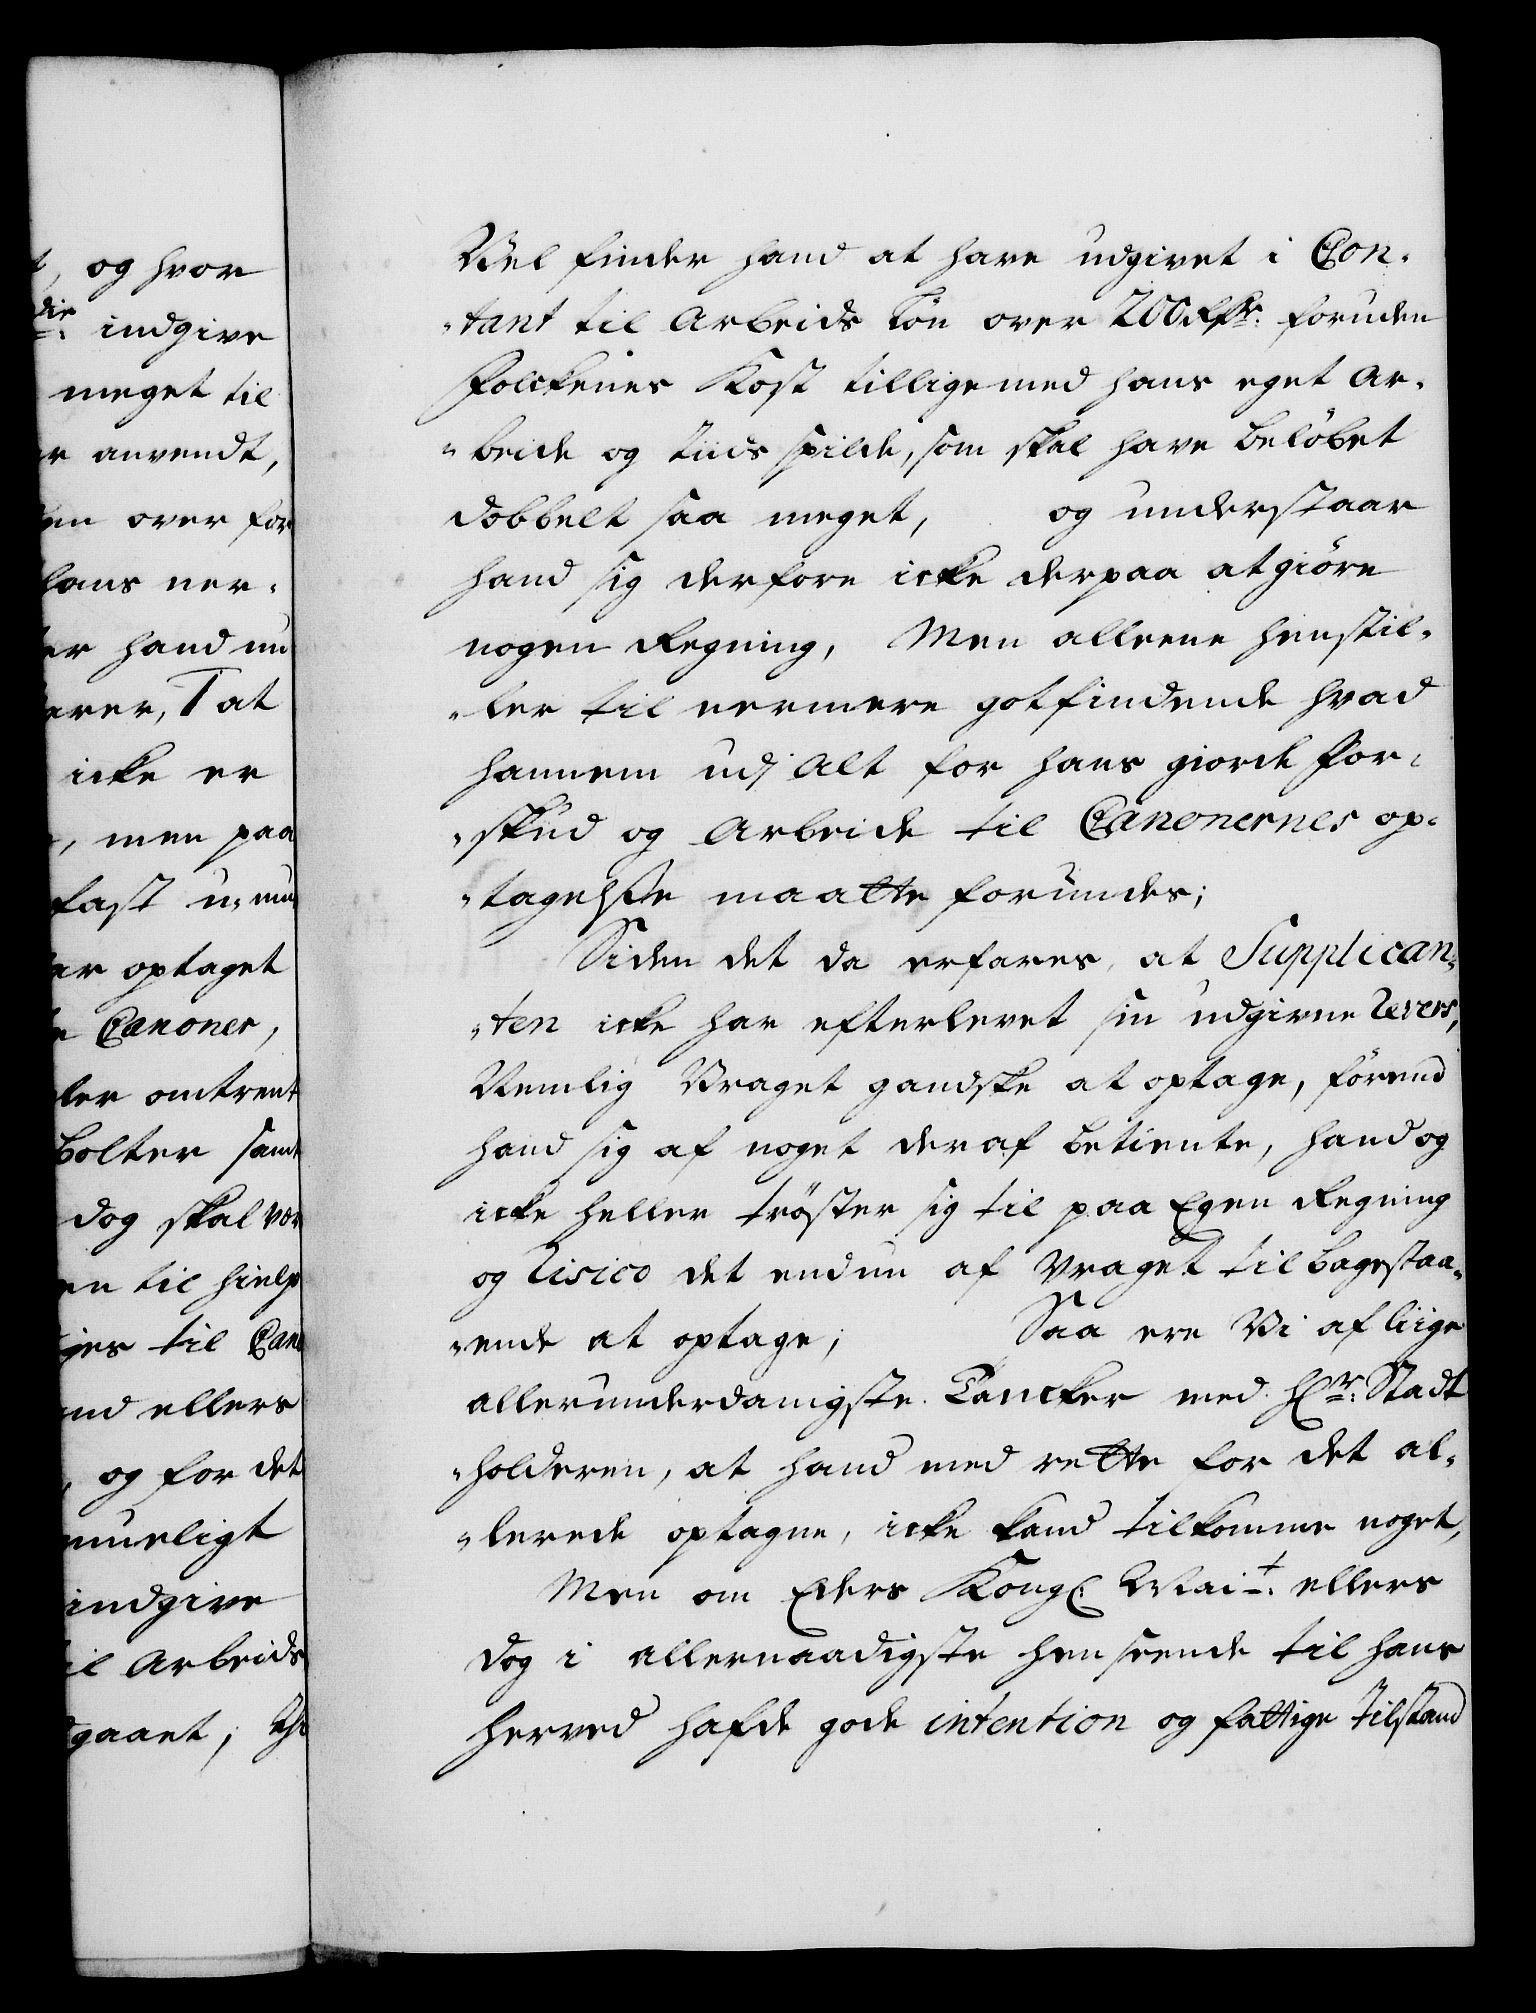 , og hvor
indgive
meget til
anvendt,
over for
ner-
hand nu
, I at
icke er
, men paa
fast
optaget
Canoner,
omtrent
bolter samt
dog skal
til hielp
til
ellers
, og for det
mueligt
indgive
Arbeids
gaaet;
Vel finder hand at have udgivet i Con-
-tant til Arbeids Lön over 200 Rdr: foruden
Folckenes Kost tillige med hans eget Ar-
-beide og Tiids spilde, som skal have belöbet
dobbelt saa meget, og understaar
hand sig derfore icke derpaa at giöre
nogen Regning, Men alleene henstil-
-ler til nermere gotfindende hvad
hannem udj Alt for hans giorde For-
-skud og Arbeide til Canonernes op-
-tagelse maatte forundes;
Siden det da erfares, at Supplican-
-ten icke har efterlevet sin udgivne Revers,
Nemlig Vraget gandske at optage, förend
hand sig af noget deraf betiente, hand og
icke heller tröster sig til paa Egen Regning
og Risico det endnu af Vraget tilbagestaa-
-ende at optage; Saa ere Vi af liige
allerunderdanigste Tancker med Hr: Stadt
-holderen, at hand med rette for det al-
-lerede optagne, icke kand tilkomme noget,
Men om Eders Kongl: Mait: ellers
dog i allernaadigste henseende til hans
herved hafde gode intention og fattige tilstand